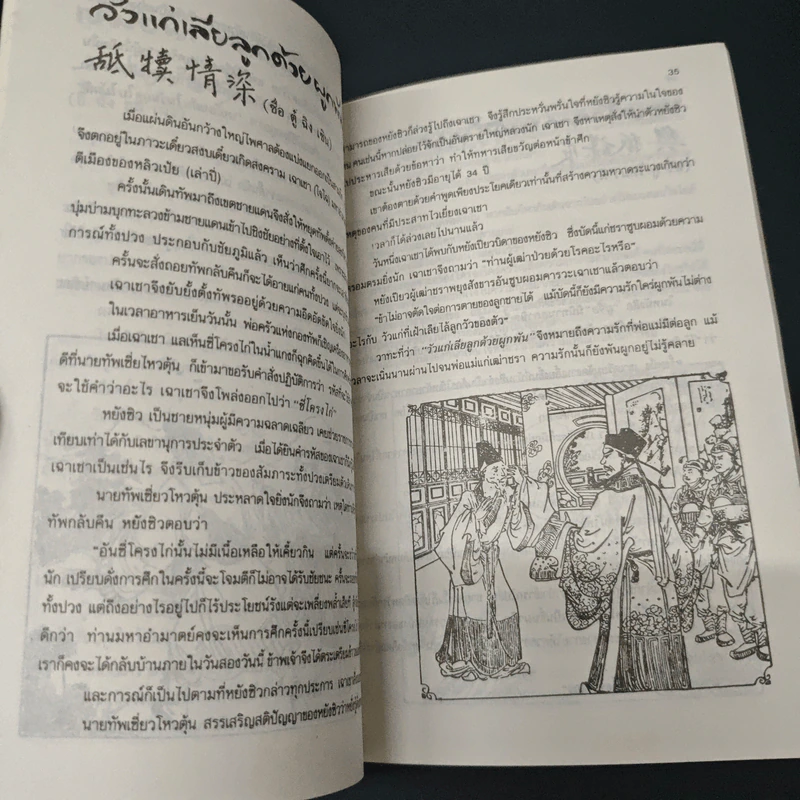 วัวแก่เลียลูกด้วยผูกพัน
舐犢情深 (ชื่อ ตู๋ ฉิง เซิน)
เมื่อแผ่นดินอันกว้างใหญ่ไพศาลต้องแบ่งแยกออกเป็น
จึงตกอยู่ในภาวะเดี๋ยวสงบเดี๋ยวเกิดสงคราม เฉาเชา (โจโฉ)
ตีเมืองของหลิวเป้ย (เล่าปี่)
ครั้งนั้นเดินทัพมาถึงเขตชายแดนจึงสั่งให้หยุดทัพตั้งค่าย
บุ่มบ่ามบุกทะลวงข้ามชายแดนเข้าไปชิงชัยอย่างที่ตั้งใจเอาไว้
การณ์ทั้งปวง ประกอบกับชัยภูมิแล้ว เห็นว่าศึกครั้งนี้ยาก
ครั้นจะสั่งถอยทัพกลับคืนก็จะได้อายแก่คนทั้งปวง
เฉาเชาจึงยับยั้งตั้งทัพรออยู่ด้วยความอึดอัดขัดใจ
ในเวลาอาหารเย็นวันนั้น พ่อครัวแห่งกองทัพก็เชิญ
เมื่อเฉาเชา แลเห็นซี่โครงไก่ในน้ำแกงก็ฉุกคิดขึ้นได้
ดีที่นายทัพเซี่ยโหวตุ้น ก็เข้ามาขอรับคำสั่งปฏิบัติการว่า
จะใช้คำว่าอะไร เฉาเชาจึงโพล่งออกไปว่า "ซี่โครงไก่"
หยังซิว เป็นชายหนุ่มผู้มีความฉลาดเฉลียว เคยช่วยราชการ
เทียบเท่าได้กับเลขานุการประจำตัว เมื่อได้ยินคำรหัสของเฉาเชา
เฉาเชาเป็นเช่นไร จึงรีบเก็บข้าวของสัมภาระทั้งปวงเตรียมตัว
นายทัพเซี่ยวโหวตุ้น ประหลาดใจยิ่งนักจึงถามว่า เหตุใด
ทัพกลับคืน หยังซิวตอบว่า
"อันซี่โครงไก่นั้นไม่มีเนื้อเหลือให้เคี้ยวกิน แต่ครั้นจะ
นัก เปรียบดั่งการศึกในครั้งนี้จะโจมตีก็ไม่อาจได้รับชัยชนะ ครั้นจะ
ทั้งปวง แต่ถึงอย่างไรอยู่ไปก็ไร้ประโยชน์รังแต่จะเพลี่ยงพล้ำเสียที
ดีกว่า ท่านมหาอำมาตย์คงจะเห็นการศึกครั้งนี้เปรียบเช่น
เราก็คงจะได้กลับบ้านภายในวันสองวันนี้ ข้าพเจ้าจึงได้ตระเตรียม
และการณ์ก็เป็นไปตามที่หยังซิวกล่าวทุกประการ
นายทัพเซี่ยวโหวตุ้น สรรเสริญสติปัญญาของหยังซิว
35
สามารถของหยังซิวก็ล่วงรู้ไปถึงเฉาเชา จึงรู้สึกประหวั่นพรั่นใจที่หยังซิวรู้ความในใจของ
คนเช่นนี้หากปล่อยไว้จักเป็นอันตรายใหญ่หลวงนัก เฉาเชา จึงหาเหตุสั่งให้นำตัวหยังซิว
ประหารเสียด้วยข้อหาว่า ทำให้ทหารเสียขวัญต่อหน้าข้าศึก
ขณะนั้นหยังซิวมีอายุได้ 34 ปี
เขาต้องตายด้วยคำพูดเพียงประโยคเดียวเท่านั้นที่สร้างความหวาดระแวงเกินกว่า
เหตุของคนที่มีประสาทไวเยี่ยงเฉาเชา
เวลาก็ได้ล่วงเลยไปนานแล้ว
วันหนึ่งเฉาเชาได้พบกับหยังเปียวบิดาของหยังซิว ซึ่งบัดนี้แก่ชราซูบผอมด้วยความ
ตรอมตรมยิ่งนัก เฉาเชาจึงถามว่า "ท่านผู้เฒ่าป่วยด้วยโรคอะไรหรือ"
หยังเปียวผู้เฒ่าชราพยุงสังขารอันซูบผอมคารวะเฉาเชาแล้วตอบว่า
"ข้าไม่อาจตัดใจต่อการตายของลูกชายได้ แม้บัดนี้ก็ยังมีความรักใคร่ผูกพันไม่ต่าง
อะไรกับ วัวแก่ที่เฝ้าเลียไล้ลูกวัวของตัว"
วาทะที่ว่า "วัวแก่เลียลูกด้วยผูกพัน" จึงหมายถึงความรักที่พ่อแม่มีต่อลูก แม้
เวลาจะเนิ่นนานผ่านไปจนพ่อแม่แก่เฒ่าชรา ความรักนั้นก็ยังพันผูกอยู่ไม่รู้คลาย